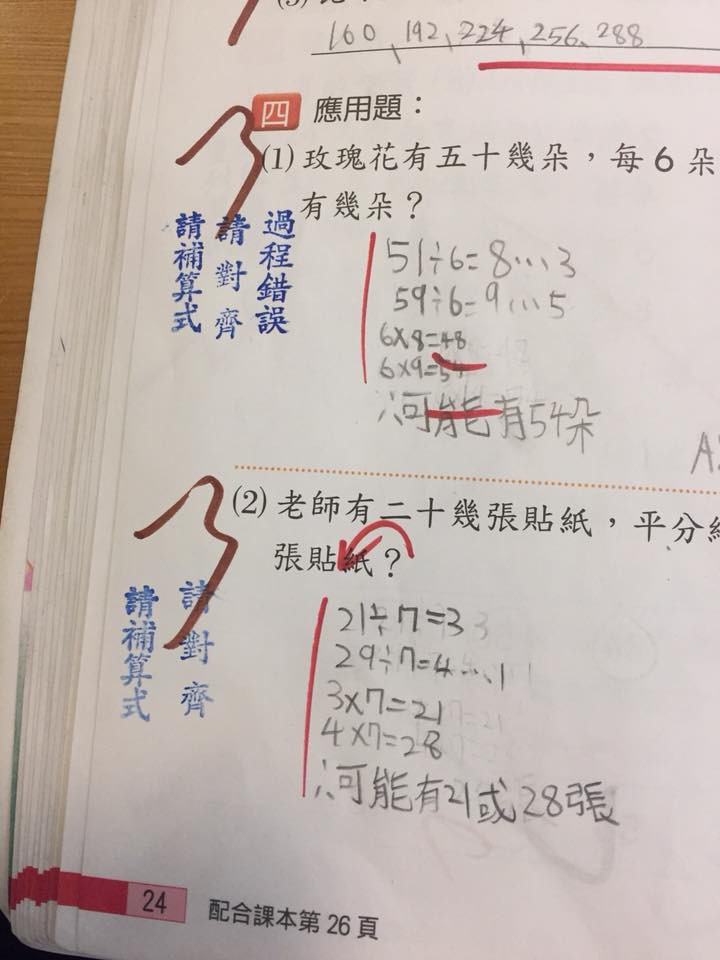 160、192、224、256、288
四 應用題：
(1) 玫瑰花有五十幾朵，每6朵
有幾朵？
過程錯誤
請對齊
請補算式
51÷6=8…3
59÷6=9…5
6×8=48
6×9=54
∴可能有54朵
(2) 老師有二十幾張貼紙，平分
張貼紙？
請對齊
請補算式
21÷7=3
29÷7=4…1
3×7=21
4×7=28
∴可能有21或28張
24 配合課本第26頁